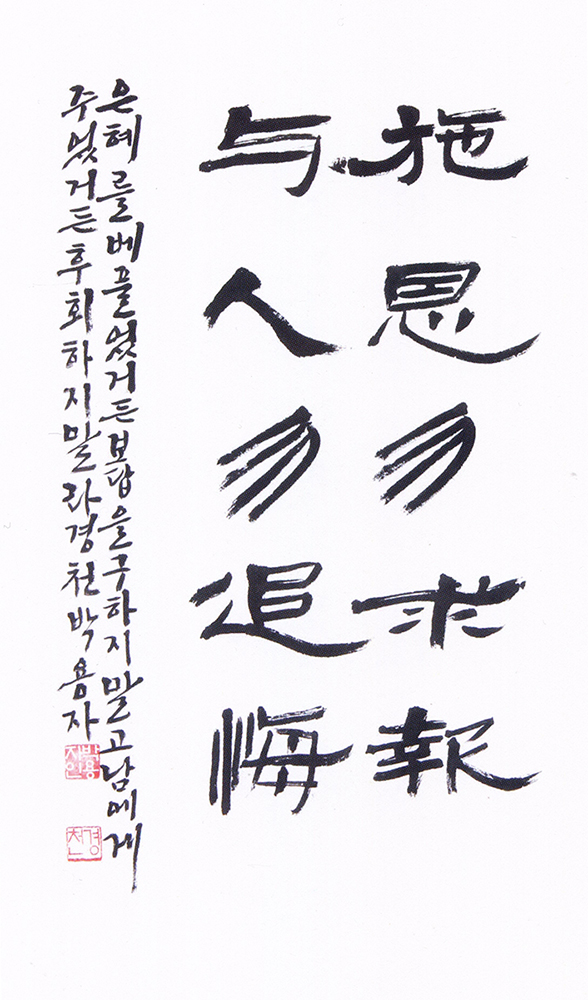 施恩勿求報
与人勿追悔
은혜를베풀었거든보답을구하지말고남에게
주었거든후회하지말라경천박용자
박용자인
경천